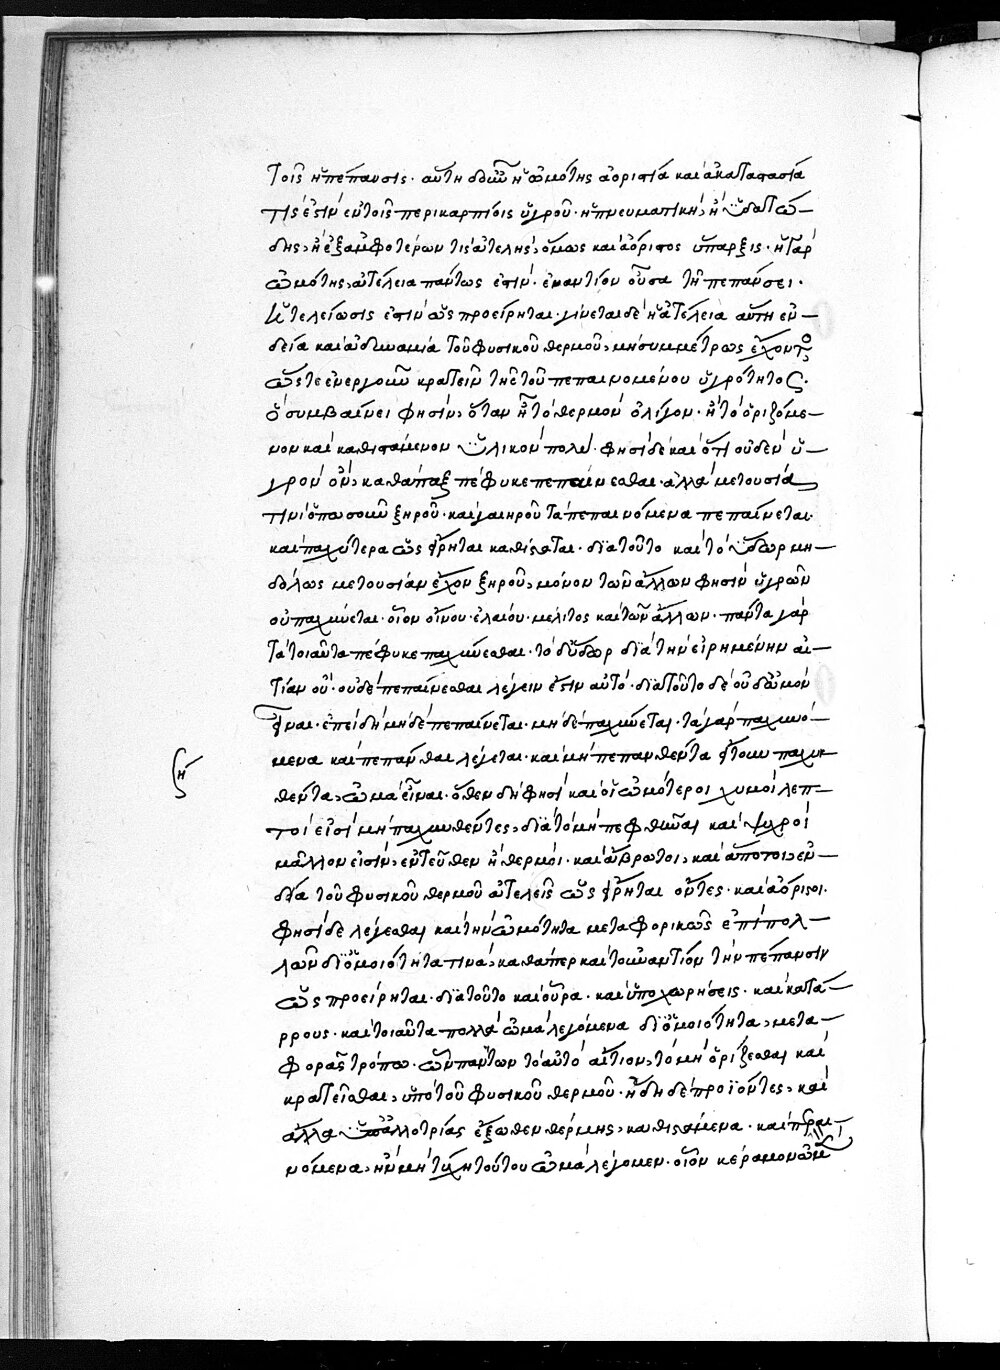 τοῖς ἡ πέπανσις· αὕτη δ' οὖν ἡ ὠμότης ἀοριστία καὶ ἀκαταστασία
τίς ἐστὶν ἐν τοῖς περικαρπίοις ὑγροῦ· ἢ πνευματική, ἢ ὑδατώ-
δης, ἢ ἐξ ἀμφοτέρων τις ἀτελὴς, ὅμως καὶ ἀόριστος ὕπαρξις· ἡ γὰρ
ὠμότης, ἀτέλεια πάντως ἐστὶν· ἐναντίον οὖσα τῇ πεπάνσει·
ἣ τελείωσίς ἐστιν ὡς προείρηται· γίνεται δὲ ἡ ἀτέλεια αὕτη ἐν-
δείᾳ καὶ ἀδυναμίᾳ τοῦ φυσικοῦ θερμοῦ, μὴ συμμέτρως ἔχοντος
ὥστε ἐνεργοῦν κρατεῖν τῆς τοῦ πεπαινομένου ὑγρότητος·
ὃ συμβαίνει φησὶν, ὅταν ᾖ τὸ θερμὸν ὀλίγον· ἢ τὸ ὁριζόμε-
νον καὶ καθιστάμενον ὑλικὸν πολύ· φησὶ δὲ καὶ ὅτι οὐδὲν ὑ-
γρὸν ὂν, καθάπαξ πέφυκε πεπαίνεσθαι· ἀλλὰ μετουσίᾳ
τινὶ ὁπωσοῦν ξηροῦ· καὶ γαιηροῦ τὰ πεπαινόμενα πεπαίνεται
καὶ παχύτερα ὡς εἴρηται καθίσταται· διὰ τοῦτο καὶ τὸ ὕδωρ μη-
δόλως μετουσίαν ἔχον ξηροῦ, μόνον τῶν ἄλλων φησὶν ὑγρῶν
οὐ παχύνεται· οἷον οἴνου· ἐλαίου· μέλιτος καὶ τῶν ἄλλων· πάντα γὰρ
τὰ τοιαῦτα πέφυκε παχύνεσθαι· τὸ δ' ὕδωρ διὰ τὴν εἰρημένην αἰ-
τίαν οὔ· οὐδὲ πεπαίνεσθαι λέγειν ἐστὶν αὐτό· διὰ τοῦτο δὲ οὐδ' ὠμὸν
εἶναι· ἐπειδὴ μηδὲ πεπαίνεται· μηδὲ παχύνεται· τὰ γὰρ παχυνό-
μενα καὶ πεπάνθαι λέγεται· καὶ μὴ πεπανθέντα ἤτοι μὴ παχυν
ἢ
θέντα, ὠμὰ εἶναι· ὅθεν δὴ φησὶ καὶ οἱ ὠμότεροι χυμοὶ λεπ-
τοί εἰσι μὴ παχυνθέντες, διὰ τὸ μὴ πεφθῆναι καὶ ψυχροὶ
μᾶλλον εἰσὶν, ἐντεῦθεν ἢ θερμοί· καὶ ἄβρωτοι, καὶ ἄποτοι, ἐν-
δείᾳ τοῦ φυσικοῦ θερμοῦ ἀτελεῖς ὡς εἴρηται ὄντες· καὶ ἀόριστοι·
φησὶ δὲ λέγεσθαι καὶ τὴν ὠμότητα μεταφορικῶς ἐπὶ πολ-
λῶν δι' ὁμοιότητά τινα, καθάπερ καὶ τοὐναντίον τὴν πέπανσιν
ὡς προείρηται· διὰ τοῦτο καὶ οὖρα· καὶ ὑποχωρήσεις· καὶ κατά-
ρρους· καὶ τοιαῦτα πολλὰ ὠμὰ λεγόμενα δι' ὁμοιότητα, μετα-
φορᾶς τρόπῳ· ὧν πάντων τὸ αὐτὸ αἴτιον, τὸ μὴ ὁρίζεσθαι καὶ
κρατεῖσθαι, ὑπὸ τοῦ φυσικοῦ θερμοῦ· ἤδη δὲ προϊόντες, καὶ
ἄλλα ὑπ' ἀλλοτρίας ἔξωθεν θέρμης, καθιστάμενα· καὶ πηγνύ-
μενα, ἢν μὴ τύχῃ τούτου ὠμὰ λέγομεν· οἷον κέραμον ὠμὸν